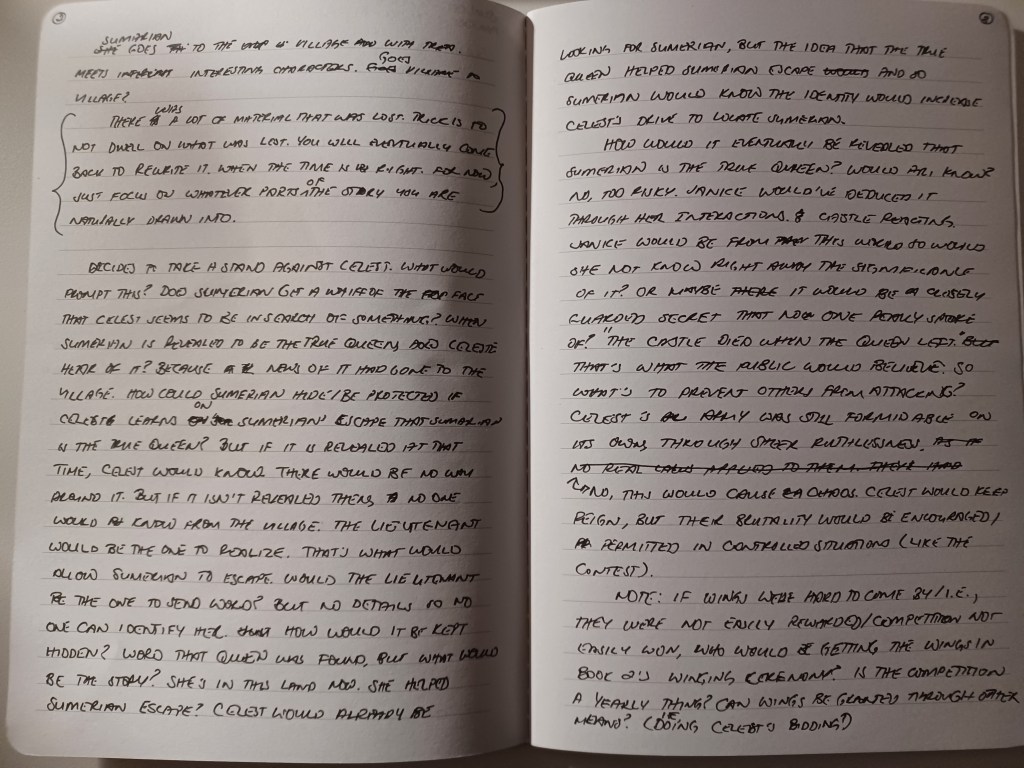 ③
SUMERIAN
SHE GOES TO THE VILLAGE AND WITH
MEETS INTERESTING CHARACTERS. GOES VILLAGE TO
VILLAGE?
THERE WAS A LOT OF MATERIAL THAT WAS LOST. TRICK IS TO
NOT DWELL ON WHAT WAS LOST. YOU WILL EVENTUALLY COME
BACK TO REWRITE IT. WHEN THE TIME IS RIGHT. FOR NOW,
JUST FOCUS ON WHATEVER PARTS OF THE STORY YOU ARE
NATURALLY DRAWN INTO.
DECIDES TO TAKE A STAND AGAINST CELEST. WHAT WOULD
PROMPT THIS? DOES SUMERIAN GET A WHIFF OF THE FACT
THAT CELEST SEEMS TO BE IN SEARCH OF SOMETHING? WHEN
SUMERIAN IS REVEALED TO BE THE TRUE QUEEN, DOES CELESTE
HEAR OF IT? BECAUSE NEWS OF IT HAD GONE TO THE
VILLAGE. HOW COULD SUMERIAN HIDE/BE PROTECTED IF
CELESTE LEARNS ON SUMERIAN ESCAPE THAT SUMERIAN
IS THE TRUE QUEEN? BUT IF IT IS REVEALED AT THAT
TIME, CELEST WOULD KNOW. THERE WOULD BE NO WAY
AROUND IT. BUT IF IT ISN'T REVEALED THEN, NO ONE
WOULD KNOW FROM THE VILLAGE. THE LIEUTENANT
WOULD BE THE ONE TO REALIZE. THAT'S WHAT WOULD
ALLOW SUMERIAN TO ESCAPE. WOULD THE LIEUTENANT
BE THE ONE TO SEND WORD? BUT NO DETAILS SO NO
ONE CAN IDENTIFY HER. HOW WOULD IT BE KEPT
HIDDEN? WORD THAT QUEEN WAS FOUND, BUT WHAT WOULD
BE THE STORY? SHE'S IN THIS LAND NOW. SHE HELPED
SUMERIAN ESCAPE? CELEST WOULD ALREADY BE
LOOKING FOR SUMERIAN, BUT THE IDEA THAT THE TRUE
QUEEN HELPED SUMERIAN ESCAPE WOULD AND SO
SUMERIAN WOULD KNOW THE IDENTITY WOULD INCREASE
CELEST'S DRIVE TO LOCATE SUMERIAN.
HOW WOULD IT EVENTUALLY BE REVEALED THAT
SUMERIAN IS THE TRUE QUEEN? WOULD ARI KNOW?
NO, TOO RISKY. JANICE WOULD'VE DEDUCED IT
THROUGH HER INTERACTIONS. & CASTLE REACTING.
JANICE WOULD BE FROM THIS WORLD SO WOULD
SHE NOT KNOW RIGHT AWAY THE SIGNIFICANCE
OF IT? OR MAYBE THERE IT WOULD BE A CLOSELY
GUARDED SECRET THAT NO ONE REALLY SPOKE
OF? "THE CASTLE DIED WHEN THE QUEEN LEFT." BUT
THAT'S WHAT THE PUBLIC WOULD BELIEVE. SO
WHAT'S TO PREVENT OTHERS FROM ATTACKING?
CELEST'S ARMY WAS STILL FORMIDABLE ON
ITS OWN, THROUGH SHEER RUTHLESSNESS. AS IF
NO REAL LAWS APPLIED TO THEM. THEY HAD
NO, THIS WOULD CAUSE CHAOS. CELEST WOULD KEEP
REIGN, BUT THEIR BRUTALITY WOULD BE ENCOURAGED/
PERMITTED IN CONTROLLED SITUATIONS (LIKE THE
CONTEST).
NOTE: IF WINGS WERE HARD TO COME BY/I.E.,
THEY WERE NOT EASILY REWARDED/COMPETITION NOT
EASILY WON, WHO WOULD BE GETTING THE WINGS IN
BOOK 2'S WINGING CEREMONY? IS THE COMPETITION
A YEARLY THING? CAN WINGS BE GRANTED THROUGH OTHER
MEANS? (I.E. DOING CELEST'S BIDDING?)